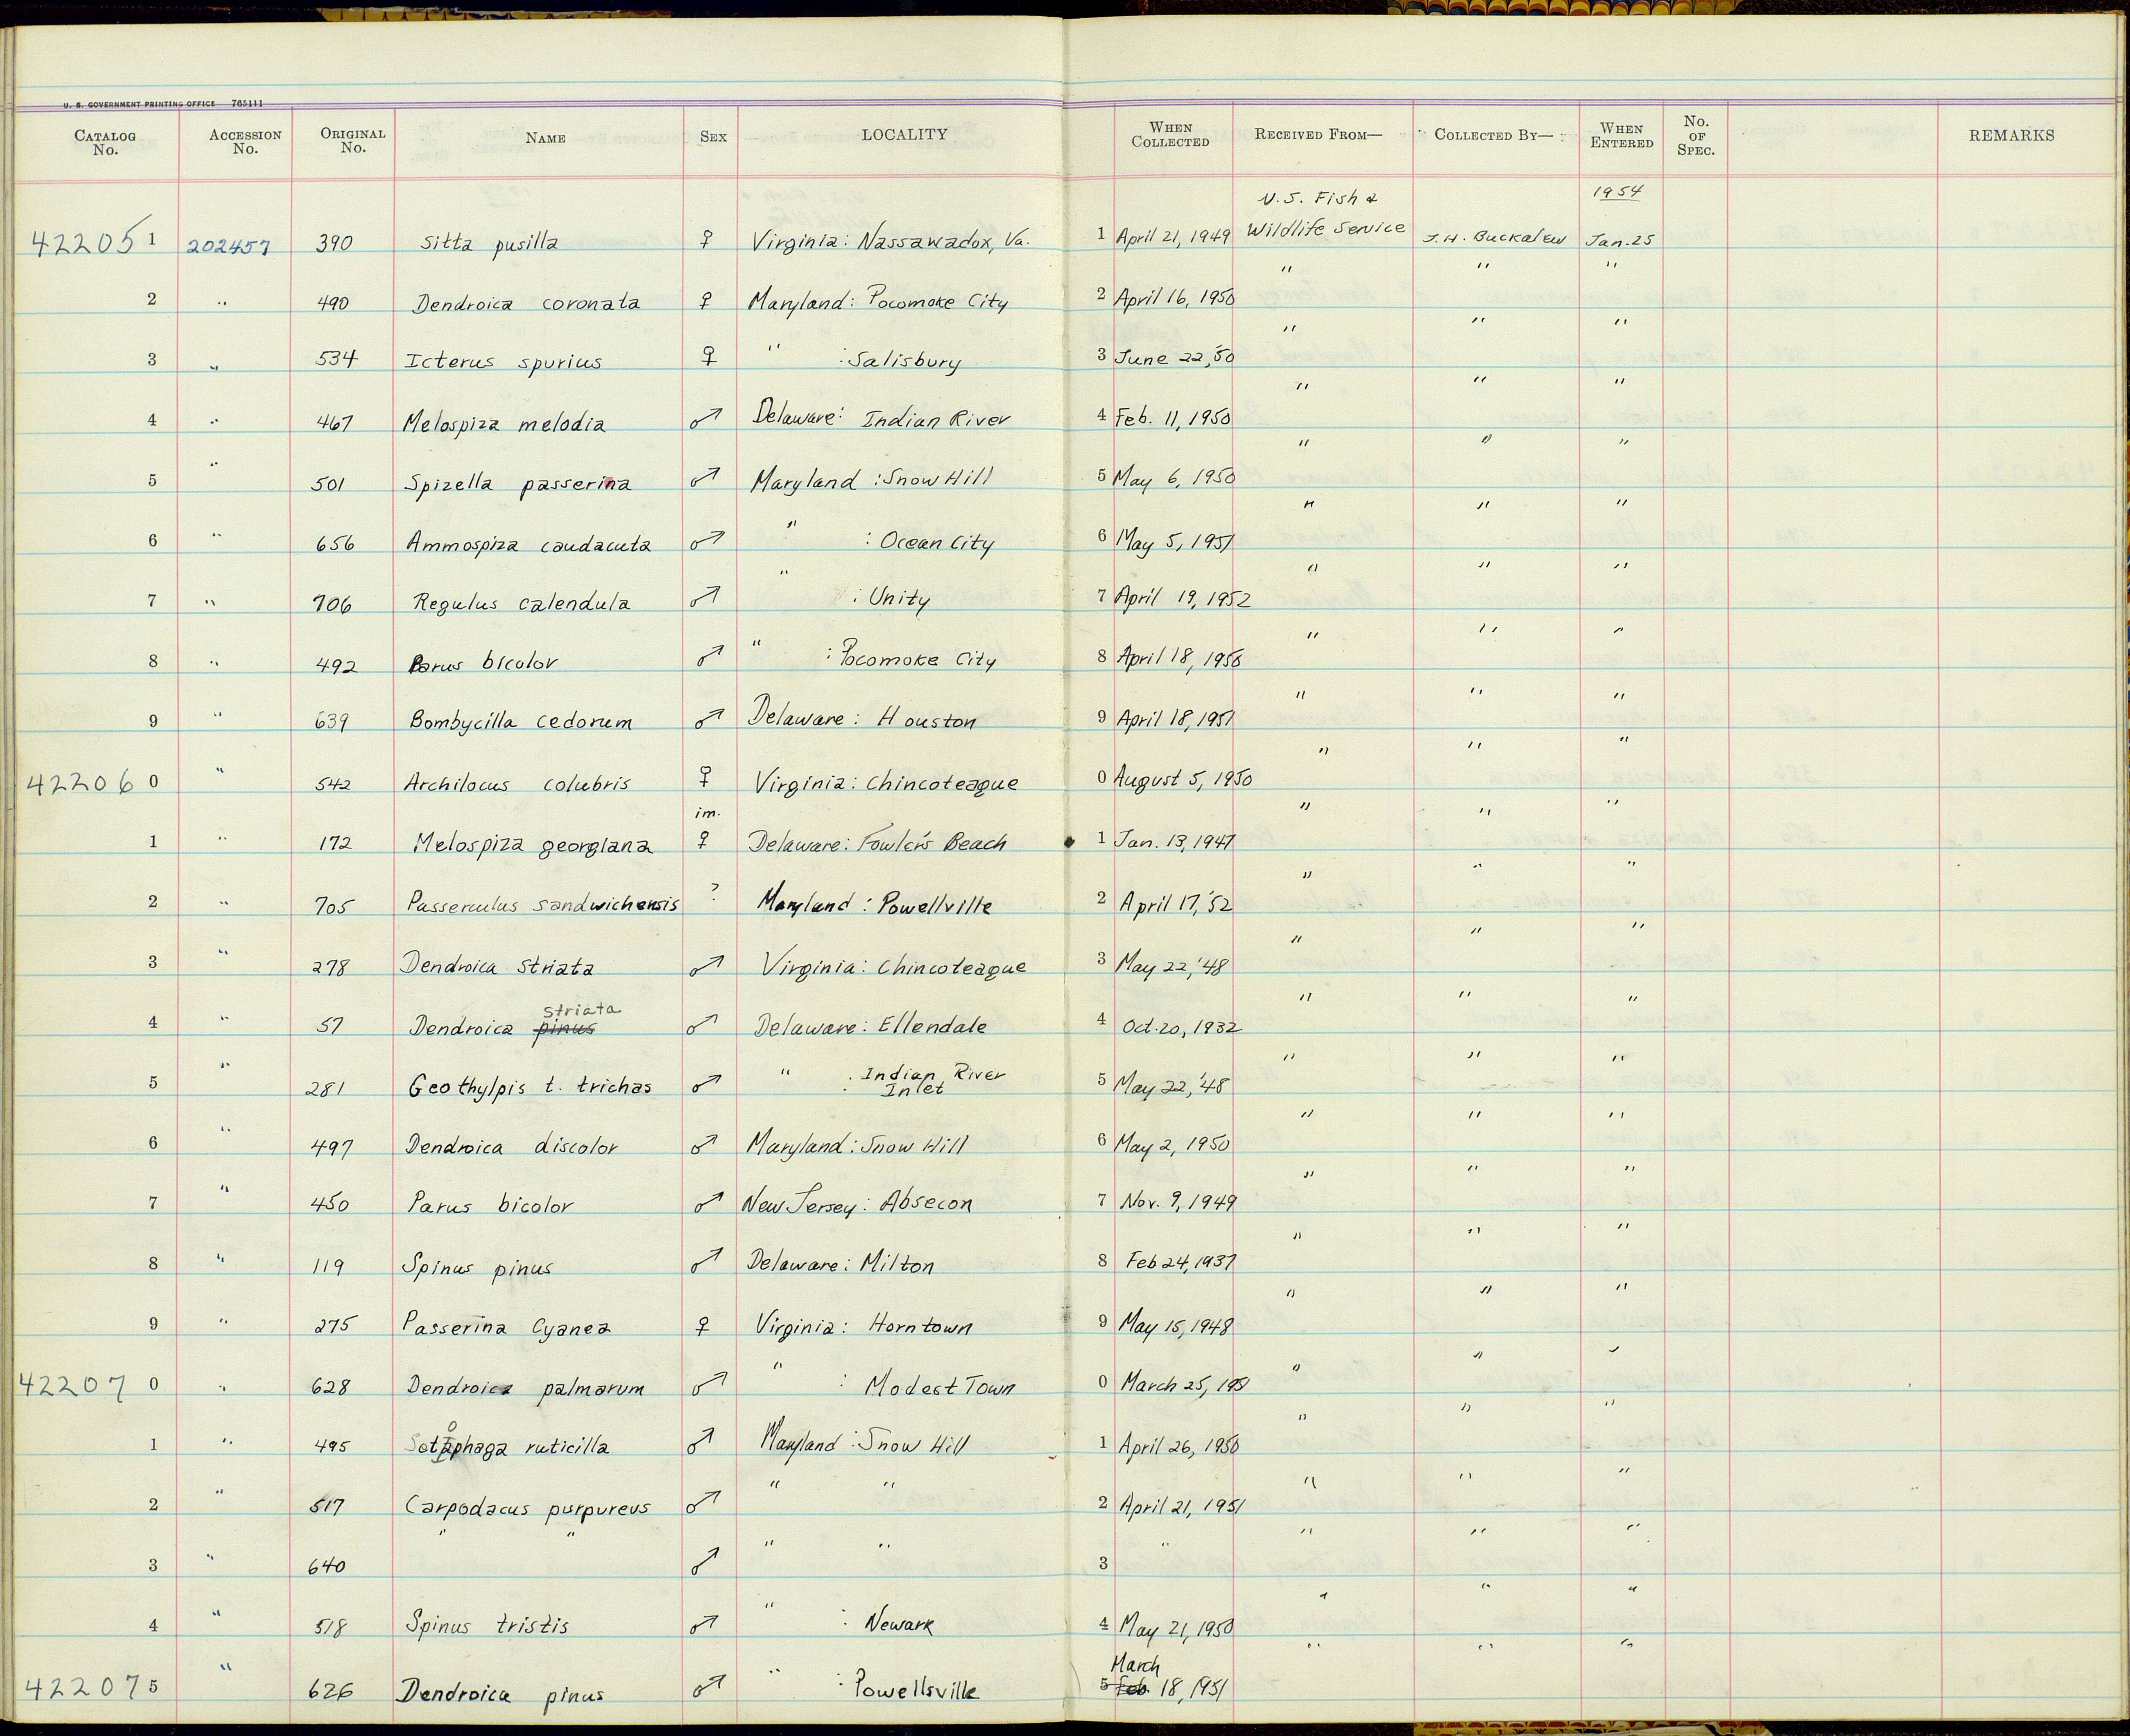 U. S. GOVERNMENT PRINTING OFFICE 765111
CATALOG No. ACCESSION No. ORIGINAL No. NAME SEX LOCALITY WHEN COLLECTED RECEIVED FROM— COLLECTED BY— WHEN ENTERED No. OF SPEC. REMARKS
U.S. Fish & 1954
422051 202457 390 Sitta pusilla ♀ Virginia: Nassawadox, Va. 1 April 21, 1949 Wildlife Service J.H. Buckalew Jan. 25
2 " 490 Dendroica coronata ♀ Maryland: Pocomoke City 2 April 16, 1950 " " "
3 " 534 Icterus spurius ♀ " : Salisbury 3 June 22, '50 " " "
4 " 467 Melospiza melodia ♂ Delaware: Indian River 4 Feb. 11, 1950 " " "
5 " 501 Spizella passerina ♂ Maryland : Snow Hill 5 May 6, 1950 " " "
6 " 656 Ammospiza caudacuta ♂ " : Ocean City 6 May 5, 1951 " " "
7 " 706 Regulus calendula ♂ " : Unity 7 April 19, 1952 " " "
8 " 492 Parus bicolor ♂ " : Pocomoke City 8 April 18, 1950 " " "
9 " 639 Bombycilla cedorum ♂ Delaware: Houston 9 April 18, 1951 " " "
422060 " 542 Archilocus colubris ♀ Virginia: Chincoteague 0 August 5, 1950 " " "
im.
1 " 172 Melospiza georgiana ♀ Delaware: Fowler's Beach 1 Jan. 13, 1947 " " "
2 " 705 Passerculus sandwichensis ? Maryland : Powellville 2 April 17, '52 " " "
3 " 278 Dendroica striata ♂ Virginia: Chincoteague 3 May 22, '48 " " "
striata
4 " 57 Dendroica pinus ♂ Delaware: Ellendale 4 Oct. 20, 1932 " " "
5 " 281 Geothylpis t. trichas ♂ " : Indian River Inlet 5 May 22, '48 " " "
6 " 497 Dendroica discolor ♂ Maryland: Snow Hill 6 May 2, 1950 " " "
7 " 450 Parus bicolor ♂ New Jersey: Absecon 7 Nov. 9, 1949 " " "
8 " 119 Spinus pinus ♂ Delaware: Milton 8 Feb 24, 1937 " " "
9 " 275 Passerina Cyanea ♀ Virginia: Horntown 9 May 15, 1948 " " "
422070 " 628 Dendroica palmarum ♂ " : Modest Town 0 March 25, 1951 " " "
1 " 495 Setophaga ruticilla ♂ Maryland : Snow Hill 1 April 26, 1950 " " "
2 " 517 Carpodacus purpureus ♂ " " 2 April 21, 1951 " " "
3 " 640 " " ♂ " " 3 " " " "
4 " 518 Spinus tristis ♂ " : Newark 4 May 21, 1950 " " "
March
422075 " 626 Dendroica pinus ♂ " : Powellsville 5 Feb. 18, 1951 " " "